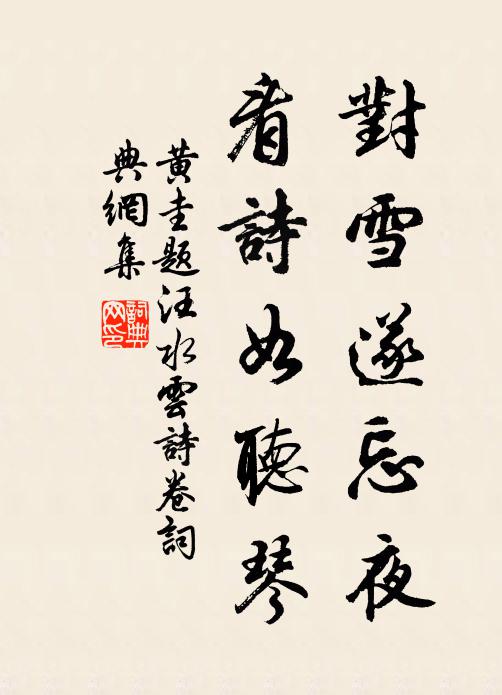 對雪遂忘夜
看詩如聽琴
黃圭題汪水雲詩卷詞
典網集
詞典
网印